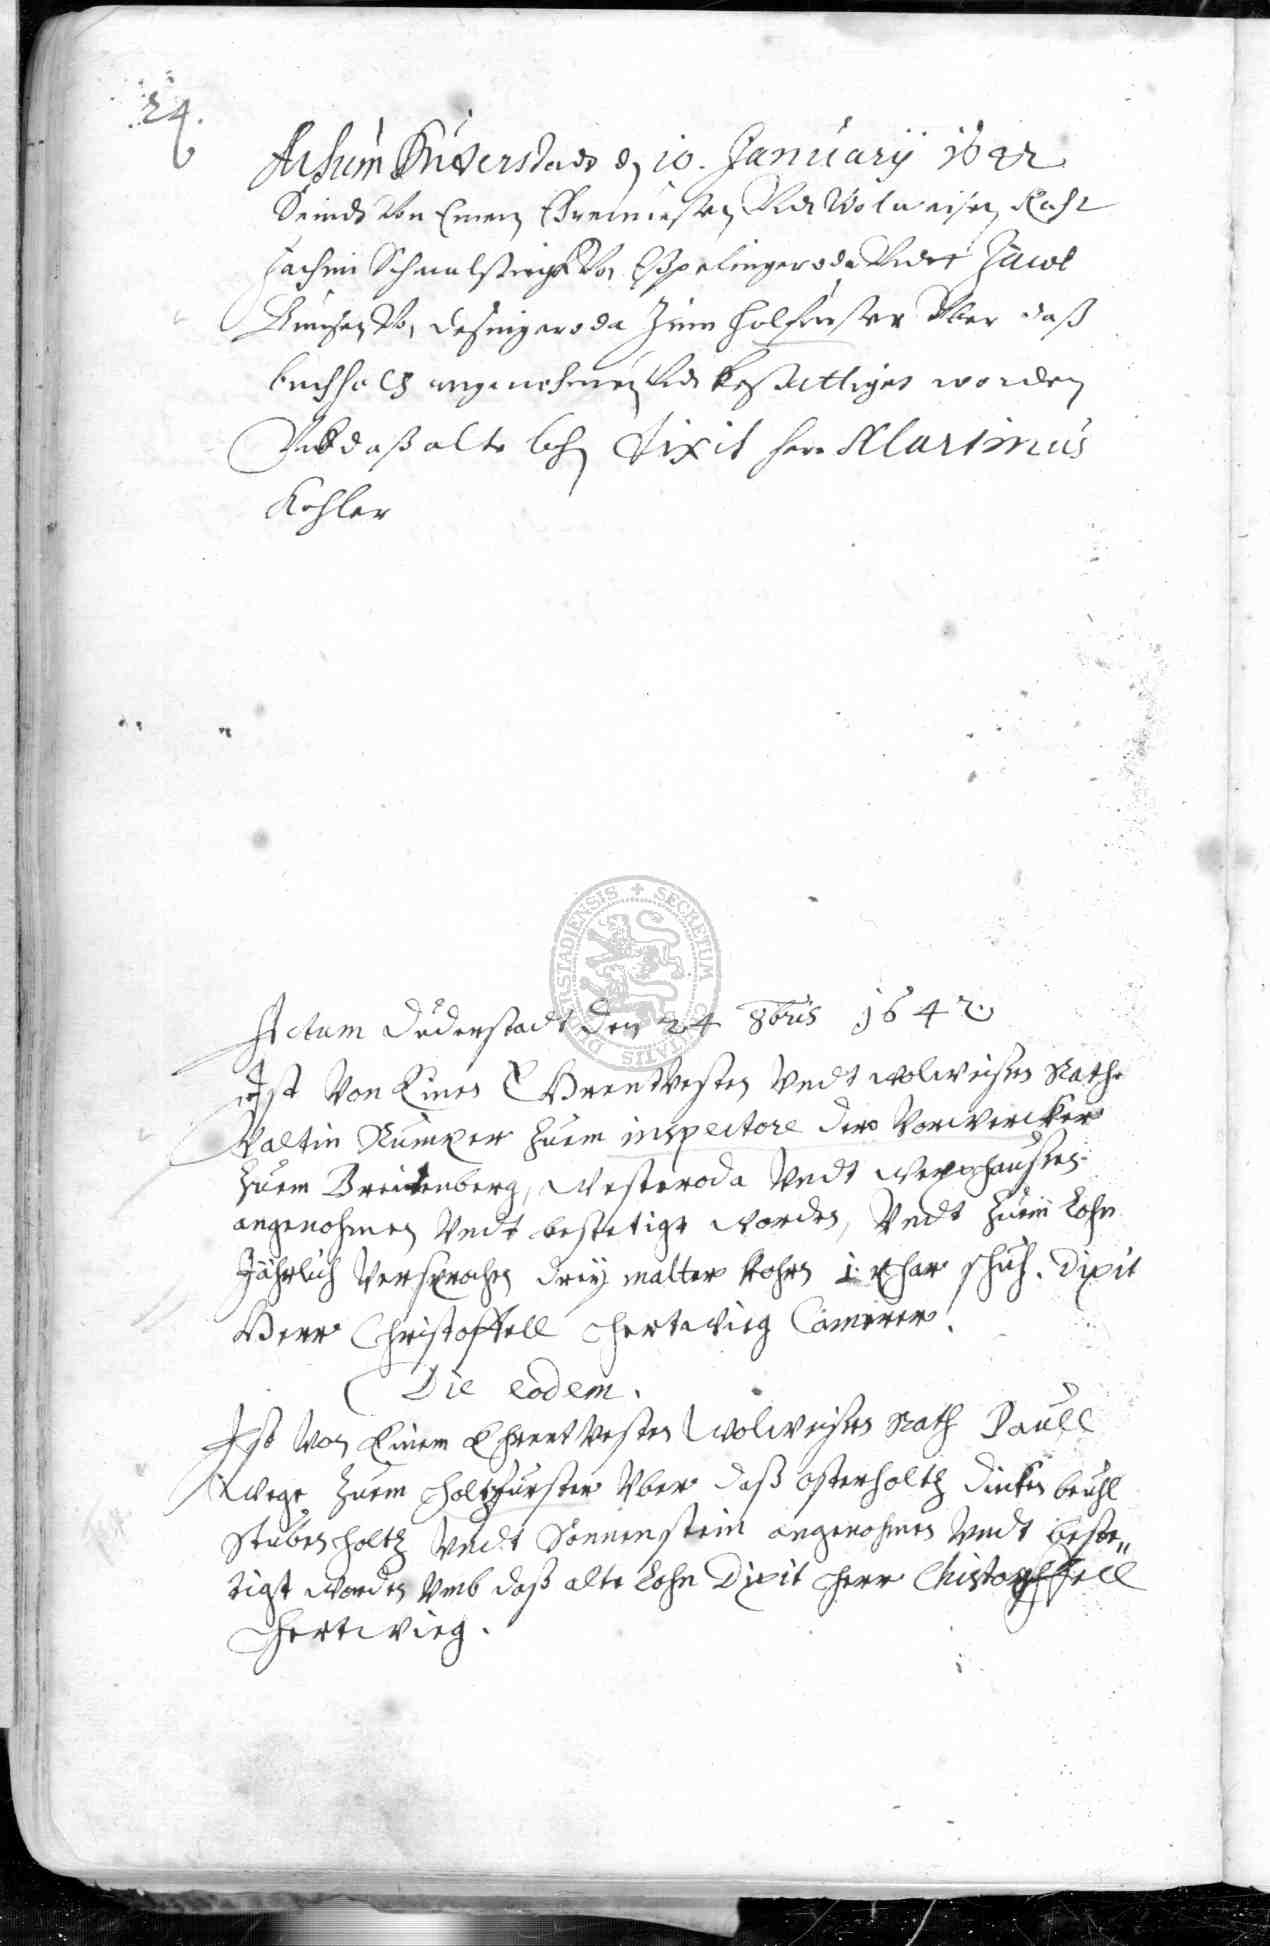 24.
Actum Duderstadt den 10. January 1642
Seindt Von Einem Ehrnuesten Vndt Wolweisen Raht
Jachim Schmalstieg Von Eßpelingeroda Vndt Jacob
Von Desingeroda Zum Holtfurster Vber daß
buchholtz angenohmen Vndt bestettiget worden
Vmb daß alte lohn dixit herr Martinus
Kohler
SECRETUM CIVITATIS DUDERSTADIENSIS
Actum Duderstadt den 24 8bris 1642
Ist Von Einen Ehrentvesten Vndt wolweisen Rath
Valtin Rumper Zuem inspectore der Vorwercker
Zuem Breitenberg, Westeroda Vndt Werxhausen
angenohmen Vndt bestetigt worden, Vndt Zuem Lohn
Jährlich Versprochen drey malter Kohrn 1 phar schuh. Dixit
Herr Christoffell Hertwieg Camerer.
Die eodem.
Ist Von Einem Ehrentvesten Wolweisen Rath Paull
Wege Zuem Holtzfurster Vber daß osterholtz dicken beuhl
Stubenholtz Vndt Sonnenstein angenohmen Vndt beste„
tigt worden Vmb daß alte Lohn Dixit Herr Christoffell
Hertwieg.